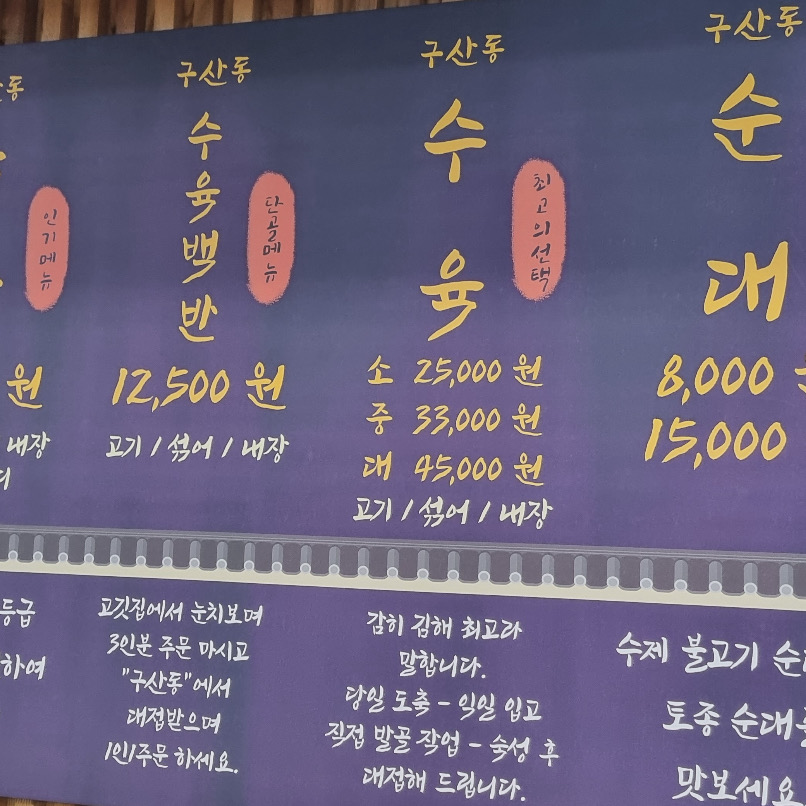 동
인기메뉴
원
내장
등급
하여
구산동
수육백반
단골메뉴
12,500 원
고기 / 섞어 / 내장
고깃집에서 눈치보며
3인분 주문 마시고
"구산동"에서
대접받으며
1인1주문 하세요.
구산동
수육
최고의선택
소 25,000 원
중 33,000 원
대 45,000 원
고기 / 섞어 / 내장
감히 김해 최고라
말합니다.
당일 도축 - 익일 입고
직접 발골 작업 - 숙성 후
대접해 드립니다.
구산동
순대
8,000
15,000
수제 불고기
토종 순대
맛보세요